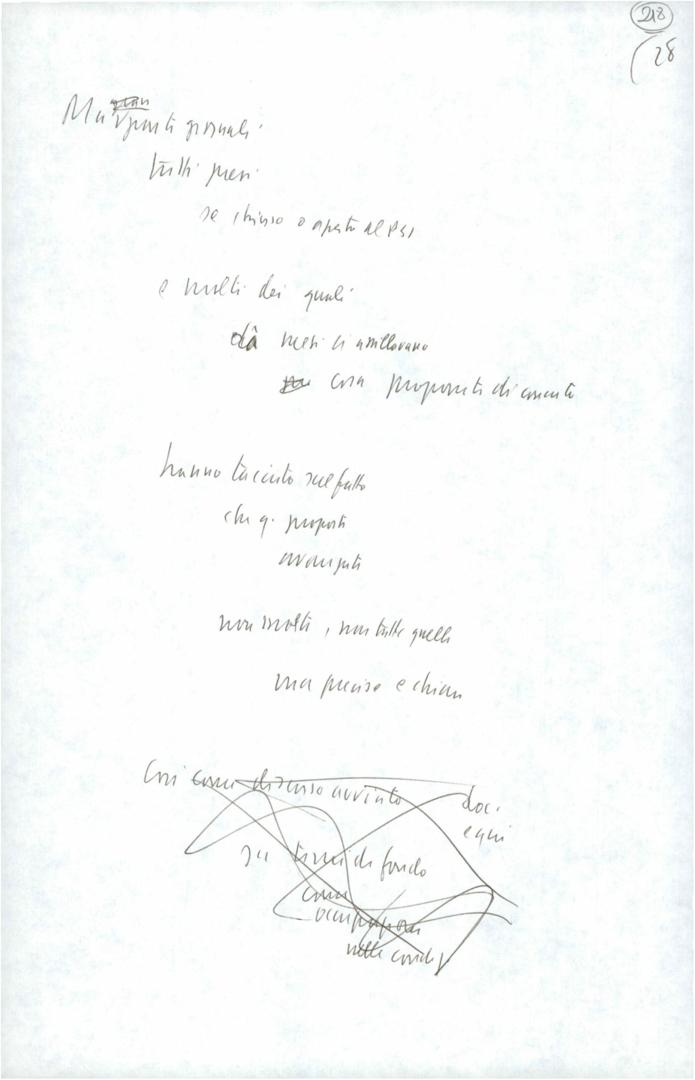 218
28
Ma questi giornali
tutti presi
se chiuso o aperto al PSI
e molti dei quali
da mesi ci assillavano
cosa proponete di concreto
hanno taciuto sul fatto
che q. proposte
avanzate
non molte, non tutte quelle
ma precise e chiare
Così come discorso avviato
doc.
e qui
su temi di fondo
come
occupazione
nelle